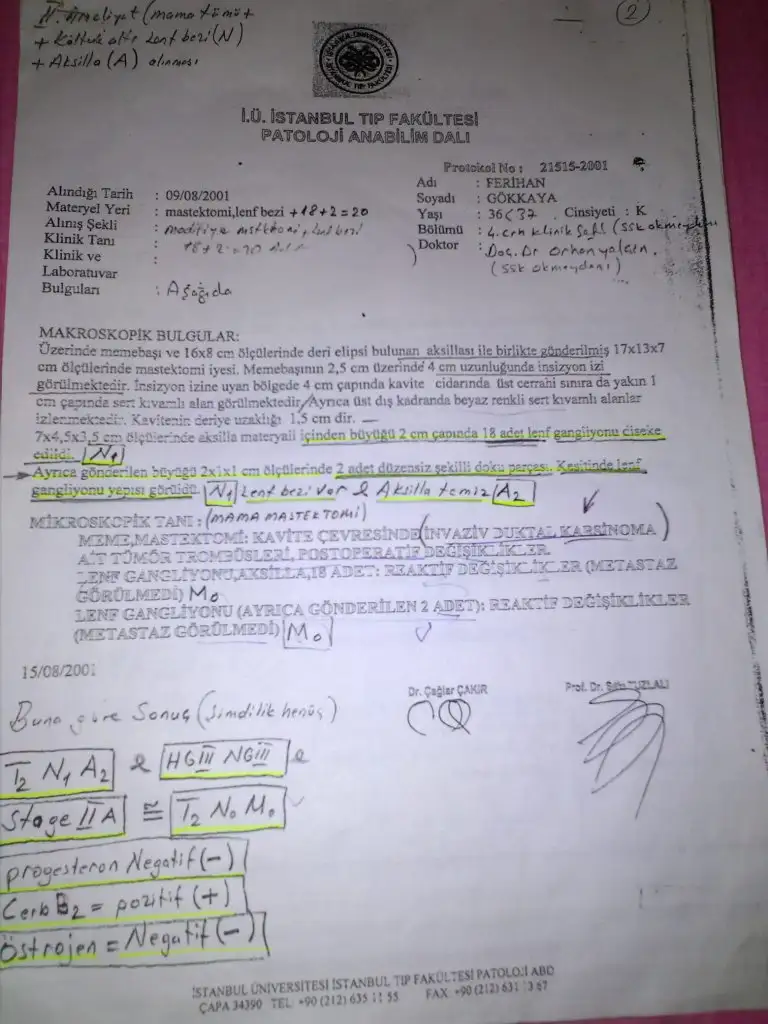 II. Ameliyat (mama tümör
+ Koltuk altı Lenf bezi (N)
+ Aksilla (A) alınması
2
İ.Ü. İSTANBUL TIP FAKÜLTESİ
PATOLOJİ ANABİLİM DALI
Protokol No : 21515-2001
Alındığı Tarih : 09/08/2001
Materyel Yeri : mastektomi,lenf bezi +18+2=20
Alınış Şekli : modifiye mastektomi, lenf bezi
Klinik Tanı : 18+2=20
Klinik ve :
Laboratuvar
Bulguları : Aşağıda
Adı : FERİHAN
Soyadı : GÖKKAYA
Yaşı : 36<37 Cinsiyeti : K
Bölümü : 4. crh klinik Şefi (SSK okmeydanı
Doktor : Doç. Dr Orhan yalçın.
(SSK okmeydanı)
MAKROSKOPİK BULGULAR:
Üzerinde memebaşı ve 16x8 cm ölçülerinde deri elipsi bulunan aksillası ile birlikte gönderilmiş 17x13x7
cm ölçülerinde mastektomi iyesi. Memebaşının 2,5 cm üzerinde 4 cm uzunluğunda insizyon izi
görülmektedir. İnsizyon izine uyan bölgede 4 cm çapında kavite cidarında üst cerrahi sınıra da yakın 1
cm çapında sert kıvamlı alan görülmektedir. Ayrıca üst dış kadranda beyaz renkli sert kıvamlı alanlar
izlenmektedir. Kavitenin deriye uzaklığı 1,5 cm dir.
7x4,5x3,5 cm ölçülerinde aksilla materyali içinden büyüğü 2 cm çapında 18 adet lenf gangliyonu diseke
edildi. N1
Ayrıca gönderilen büyüğü 2x1x1 cm ölçülerinde 2 adet düzensiz şekilli doku parçası. Kesitinde lenf
gangliyonu yapısı görüldü. N1 Lenf bezi var & Aksilla temiz A2
MİKROSKOPİK TANI : (MAMA MASTEKTOMİ)
MEME,MASTEKTOMİ: KAVİTE ÇEVRESİNDE (İNVAZİV DUKTAL KARSİNOMA)
AİT TÜMÖR TROMBÜSLERİ, POSTOPERATİF DEĞİŞİKLİKLER
LENF GANGLİYONU,AKSİLLA,18 ADET: REAKTİF DEĞİŞİKLİKLER (METASTAZ
GÖRÜLMEDİ) M0
LENF GANGLİYONU (AYRICA GÖNDERİLEN 2 ADET): REAKTİF DEĞİŞİKLİKLER
(METASTAZ GÖRÜLMEDİ) M0
15/08/2001
Dr. Çağlar ÇAKIR
Prof. Dr. TUZLALI
Buna göre Sonuç (şimdilik henüz)
T2 N1 A2 & HG III NG III &
Stage II A ≅ T2 N0 M0
progesteron Negatif (-)
Cerb B2 = pozitif (+)
Östrojen = Negatif (-)
İSTANBUL ÜNİVERSİTESİ İSTANBUL TIP FAKÜLTESİ PATOLOJİ ABD
ÇAPA 34390 TEL +90 (212) 635 11 55 FAX +90 (212) 631 13 67